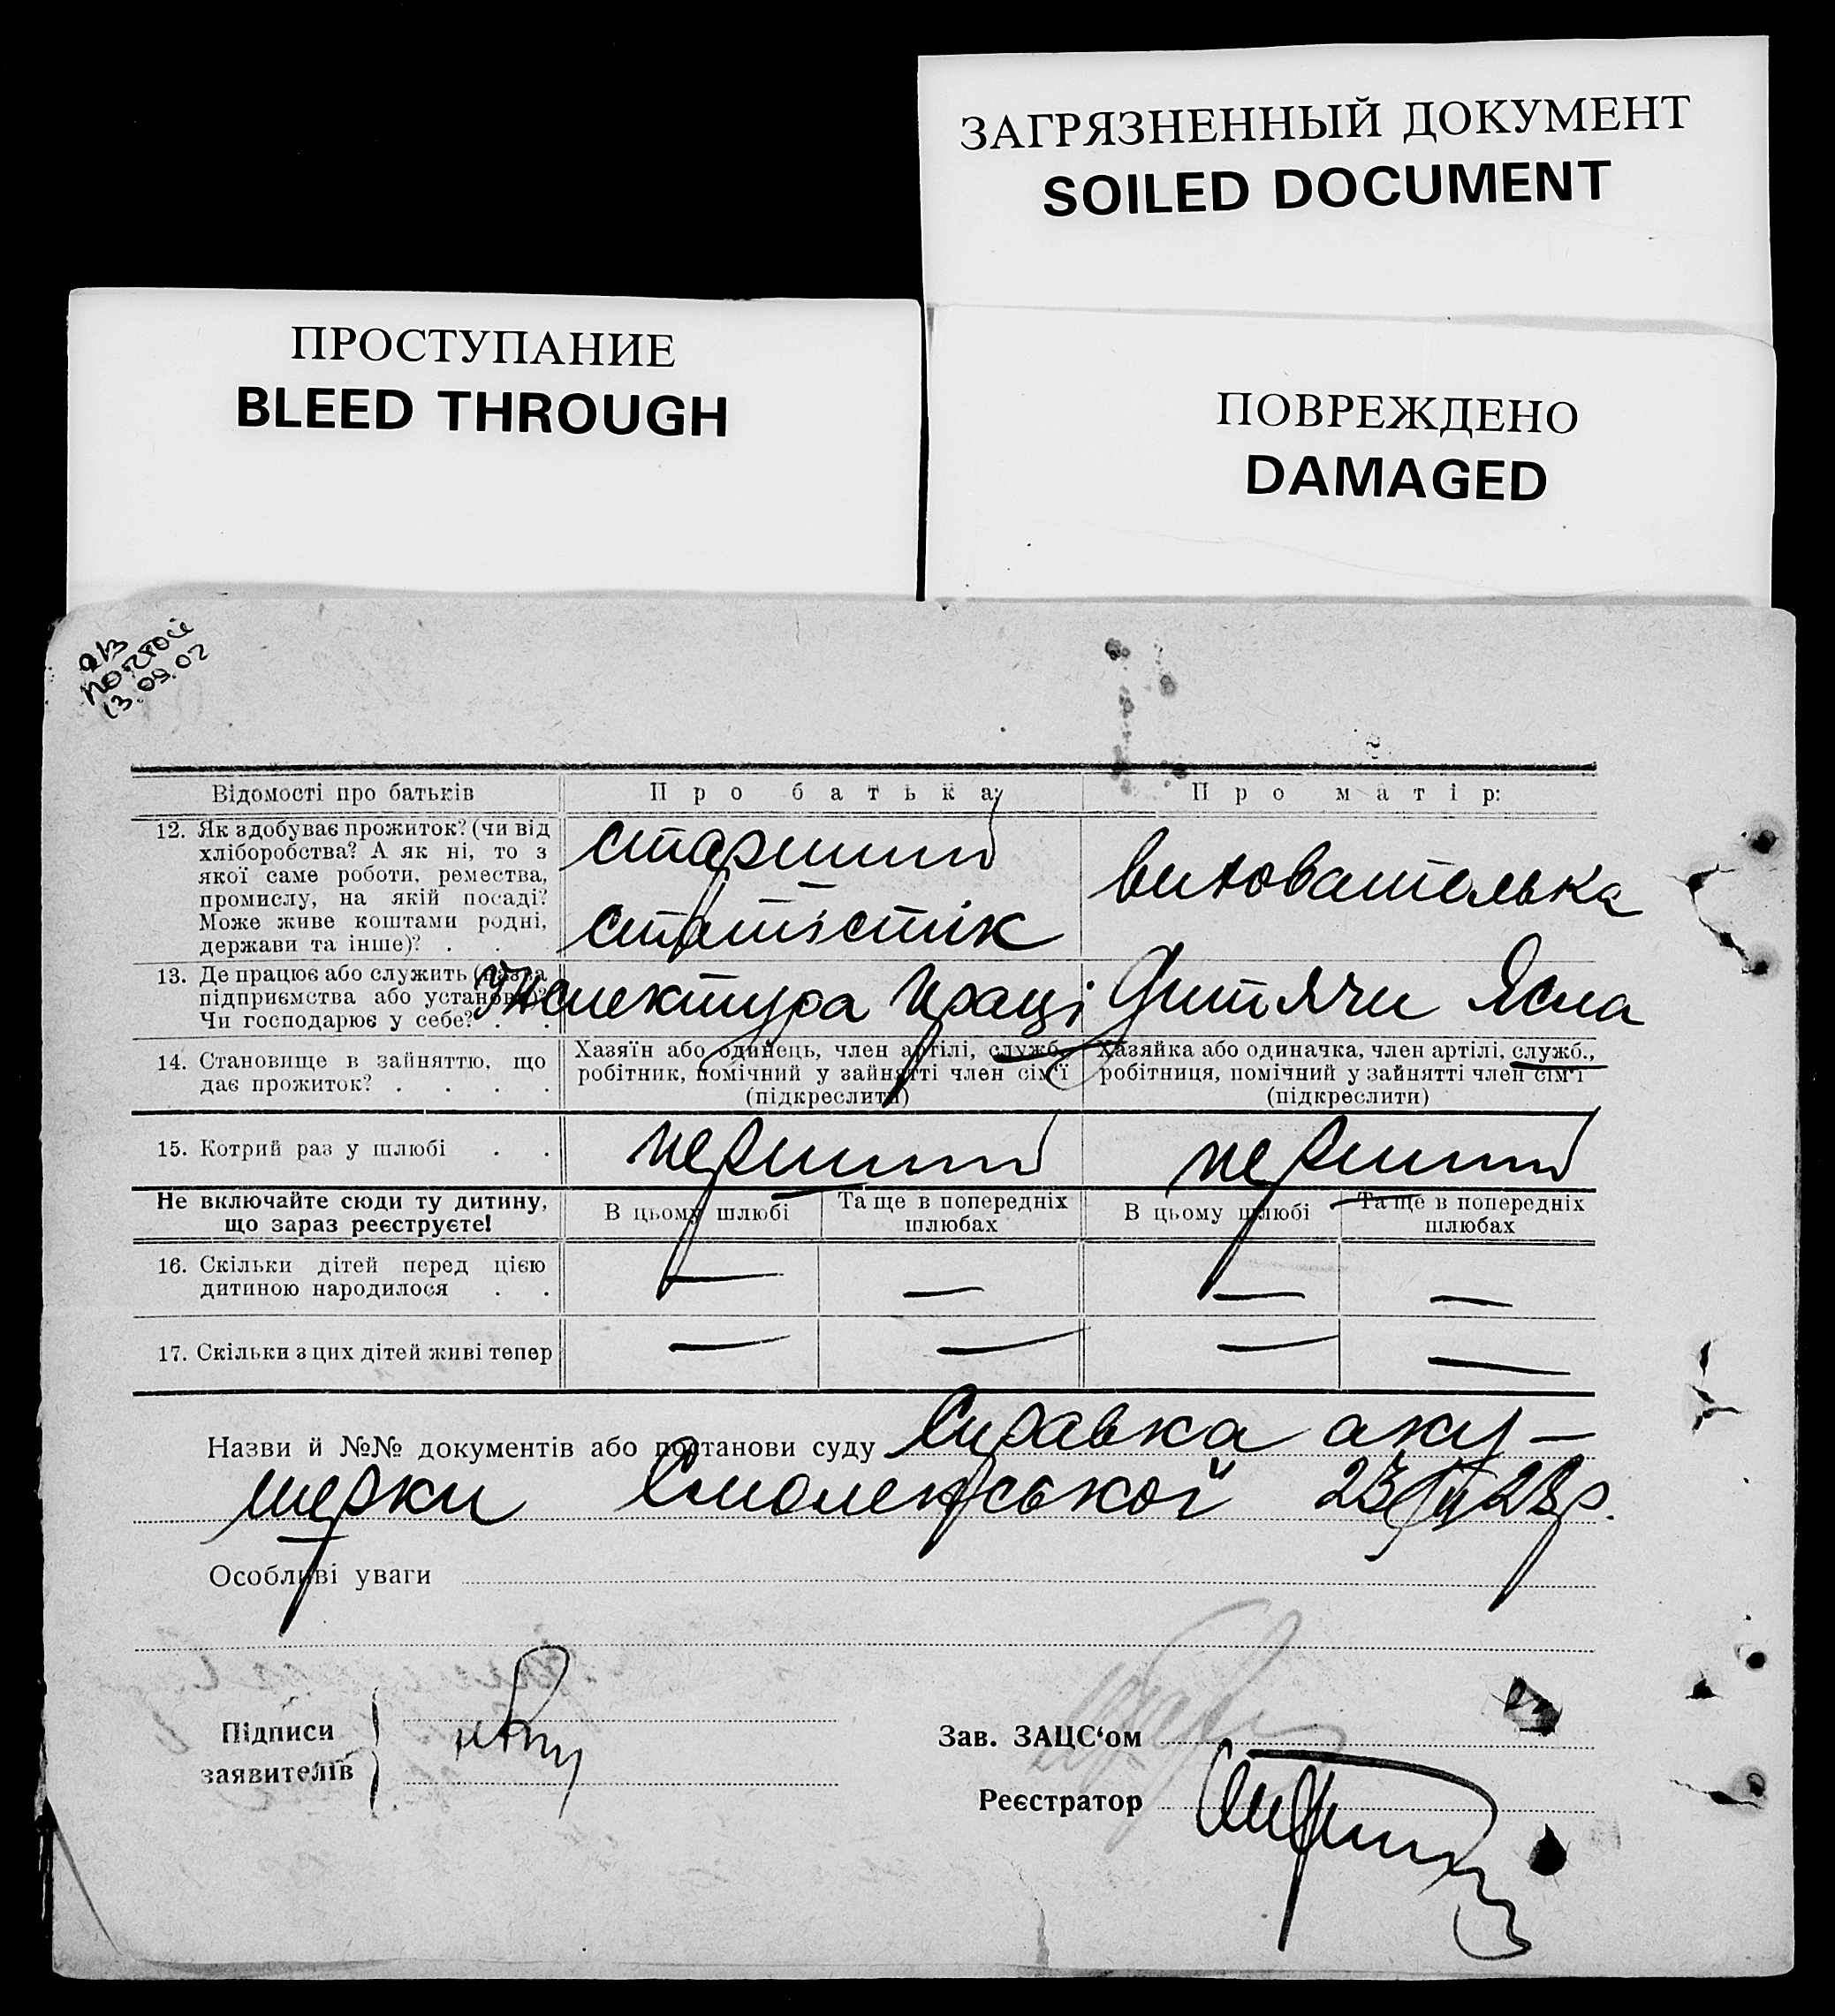 ЗАГРЯЗНЕННЫЙ ДОКУМЕНТ
SOILED DOCUMENT
ПРОСТУПАНИЕ
BLEED THROUGH
ПОВРЕЖДЕНО
DAMAGED
13.09.02
Відомості про батьків
Про батька:
Про матір:
12. Як здобуває прожиток? (чи від
хліборобства? А як ні, то з
якої саме роботи, ремества,
промислу, на якій посаді?
Може живе коштами родні,
держави та інше)? . .
старший
статістік
вихователька
13. Де працює або служить (назва
підприємства або установи)?
Чи господарює у себе? . .
Инспектура праці
Дитячи Ясла
14. Становище в зайняттю, що
дає прожиток? . . . .
Хазяїн або одинець, член артілі, служб.,
робітник, помічний у зайнятті член сім'ї
(підкреслити)
Хазяйка або одиначка, член артілі, служб.,
робітниця, помічний у зайнятті член сім'ї
(підкреслити)
15. Котрий раз у шлюбі . .
перший
перший
Не включайте сюди ту дитину,
що зараз реєструєте!
В цьому шлюбі
Та ще в попередніх
шлюбах
В цьому шлюбі
Та ще в попередніх
шлюбах
16. Скільки дітей перед цією
дитиною народилося . .
— — — —
17. Скільки з цих дітей живі тепер
— — — —
Назви й №№ документів або постанови суду Справка аку-
шерки 23 28р.
Особливі уваги
Підписи
заявителів
Зав. ЗАЦС'ом
Реєстратор